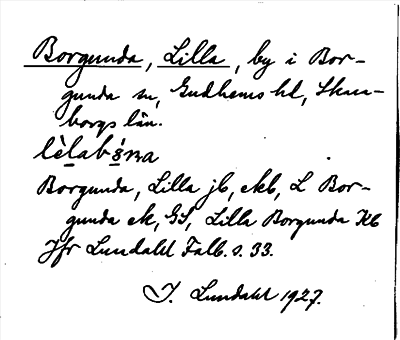 Borgunda, Lilla, by i Bor-
gunda sn, Gudhems hd, Skara-
borgs län.
Borgunda, Lilla jb, ekb, L Bor-
gunda ek, GS, Lilla Borgunda Kb
Jfr Lundahl Falb. s. 33.
I. Lundahl 1927.